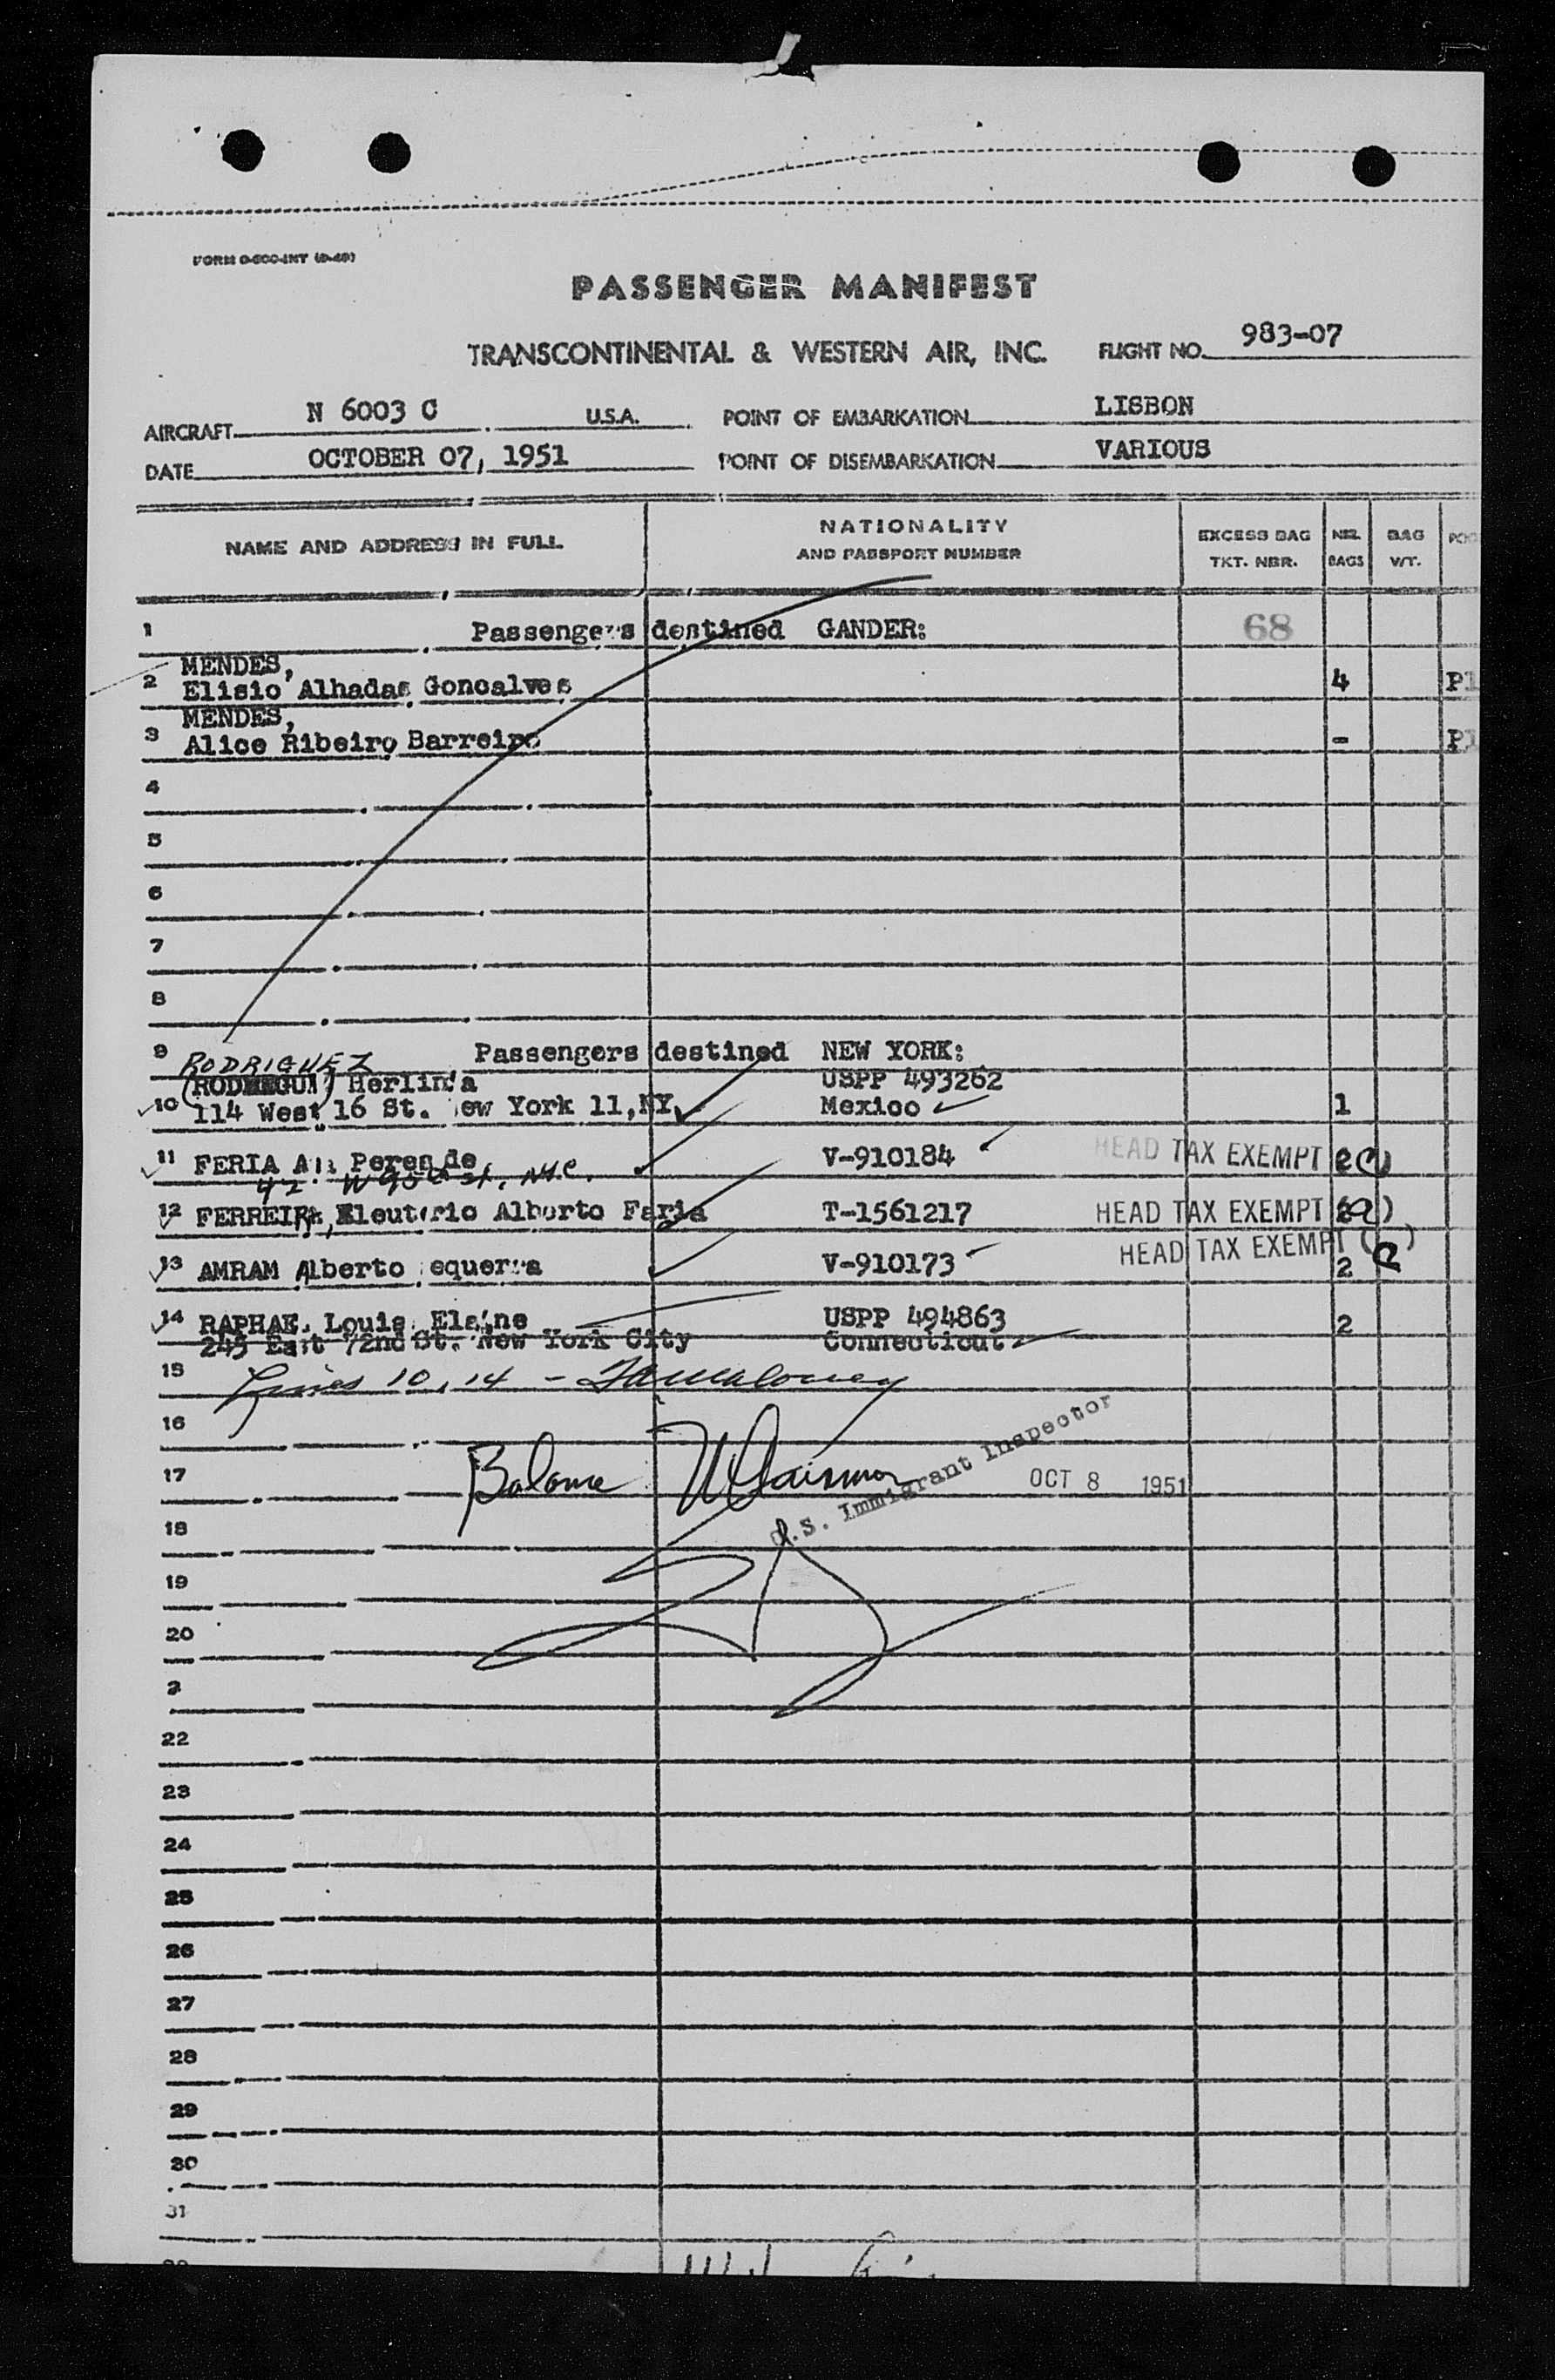 FORM 0-600-INT (9-49)
PASSENGER MANIFEST
TRANSCONTINENTAL & WESTERN AIR, INC. FLIGHT NO. 983-07
AIRCRAFT N 6003 C U.S.A. POINT OF EMBARKATION LISBON
DATE OCTOBER 07, 1951 POINT OF DISEMBARKATION VARIOUS
NAME AND ADDRESS IN FULL NATIONALITY AND PASSPORT NUMBER EXCESS BAG TKT. NBR. NBR. BAGS BAG WT.
1 Passengers destined GANDER: 68
MENDES,
2 Elisio Alhadas Goncalves 4 Pl
MENDES,
3 Alice Ribeiro Barreiro - Pl
4
5
6
7
8
9 Passengers destined NEW YORK:
RODRIGUEZ
Herlinda USPP 493262
10 114 West 16 St. ew York 11, NY Mexico 1
11 FERIA V-910184 HEAD TAX EXEMPT
42 W St. NYC.
12 FERREIRA, Eleuterio Alberto Faria T-1561217 HEAD TAX EXEMPT
HEAD TAX EXEMPT
13 AMRAM Alberto equerra V-910173 2
14 RAPHAE Louis Elaine USPP 494863 2
245 East 72nd St. New York City Connecticut
15 Lines 10, 14 -
16
17 Balance OCT 8 1951
U.S. Immigrant Inspector
18
19
20
2
22
23
24
25
26
27
28
29
30
31